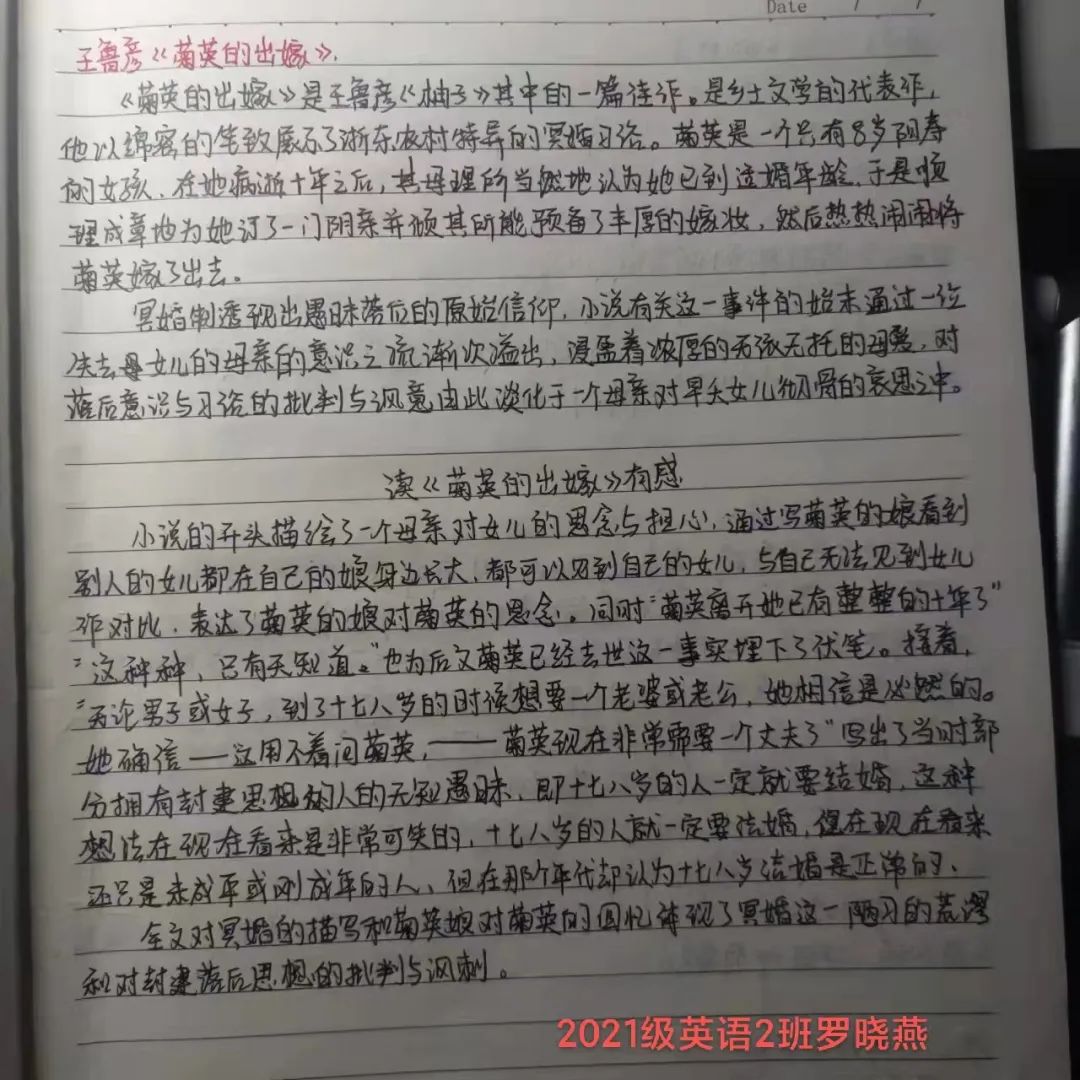 Date / /
王鲁彦《菊英的出嫁》.
《菊英的出嫁》是王鲁彦《柚子》其中的一篇佳作。是乡土文学的代表作,
他以绵密的笔致展示了浙东农村特异的冥婚习俗。菊英是一个只有8岁阳寿
的女孩、在她病逝十年之后,其母理所当然地认为她已到适婚年龄、于是顺
理成章地为她订了一门阴亲并倾其所能预备了丰厚的嫁妆,然后热热闹闹将
菊英嫁了出去。
冥婚制透现出愚昧落后的原始信仰,小说有关这一事件的始末通过一位
失去母女儿的母亲的意识之流渐次溢出,浸盈着浓厚的无该无托的母爱,对
落后意识与习俗的批判与讽意由此淡化于一个母亲对早夭女儿彻骨的哀思之中。
读《菊英的出嫁》有感
小说的开头描绘了一个母亲对女儿的思念与担心,通过写菊英的娘看到
别人的女儿都在自己的娘身边长大、都可以见到自己的女儿,与自己无法见到女儿
作对比、表达了菊英的娘对菊英的思念。同时“菊英离开她已有整整的十年了”
“这种种,只有天知道。”也为后文菊英已经去世这一事实埋下了伏笔。接着,
“无论男子或女子,到了十七八岁的时候想要一个老婆或老公,她相信是必然的。
她确信——这用不着问菊英,——菊英现在非常需要一个丈夫了”写出了当时部
分拥有封建思想的人的无知愚昧、即十七八岁的人一定就要结婚,这种
想法在现在看来是非常可笑的,十七八岁的人就一定要结婚,但在现在看来
还只是未成年或刚成年的人、但在那个年代却认为十七八岁结婚是正常的、
全文对冥婚的描写和菊英娘对菊英的回忆体现了冥婚这一陋习的荒谬
和对封建落后思想的批判与讽刺。
2021级英语2班罗晓燕